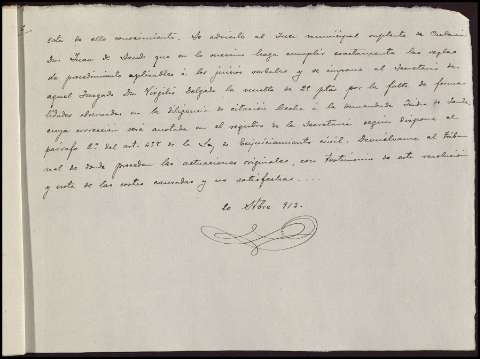 esta de ello conocimiento. Se advierte al Juez municipal suplente de
Don Juan de que en lo sucesivo haga cumplir exactamente las reglas
de procedimiento aplicables á los juicios verbales y se impone al Secretario de
aquel Juzgado Don Virgilio Delgado la multa de 25 ptas por la falta de forma
lidades observadas en la diligencia de citación hecha á la demandada de
cuya corrección será anotada en el registro de la Secretaría según dispone el
párrafo 2º del art. de la Ley de Enjuiciamiento civil. Devuélvanse al Tribu
nal de donde proceden las actuaciones originales, con testimonio de esta resolución
y nota de las costas causadas y no satisfechas....
20 Nbre 913.